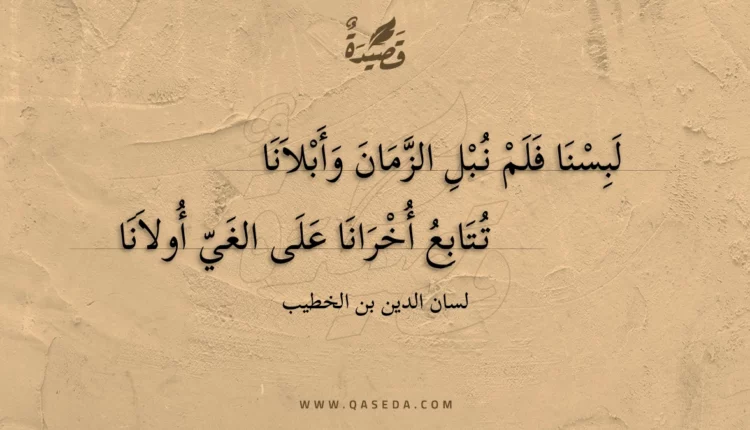 قَصِيدَةٌ
لَبِسْنَا فَلَمْ نُبْلِ الزَّمَانَ وَأَبْلاَنَا
تُتَابِعُ أُخْرَانَا عَلَى الغَيّ أُولاَنَا
لسان الدين بن الخطيب
WWW.QASEDA.COM